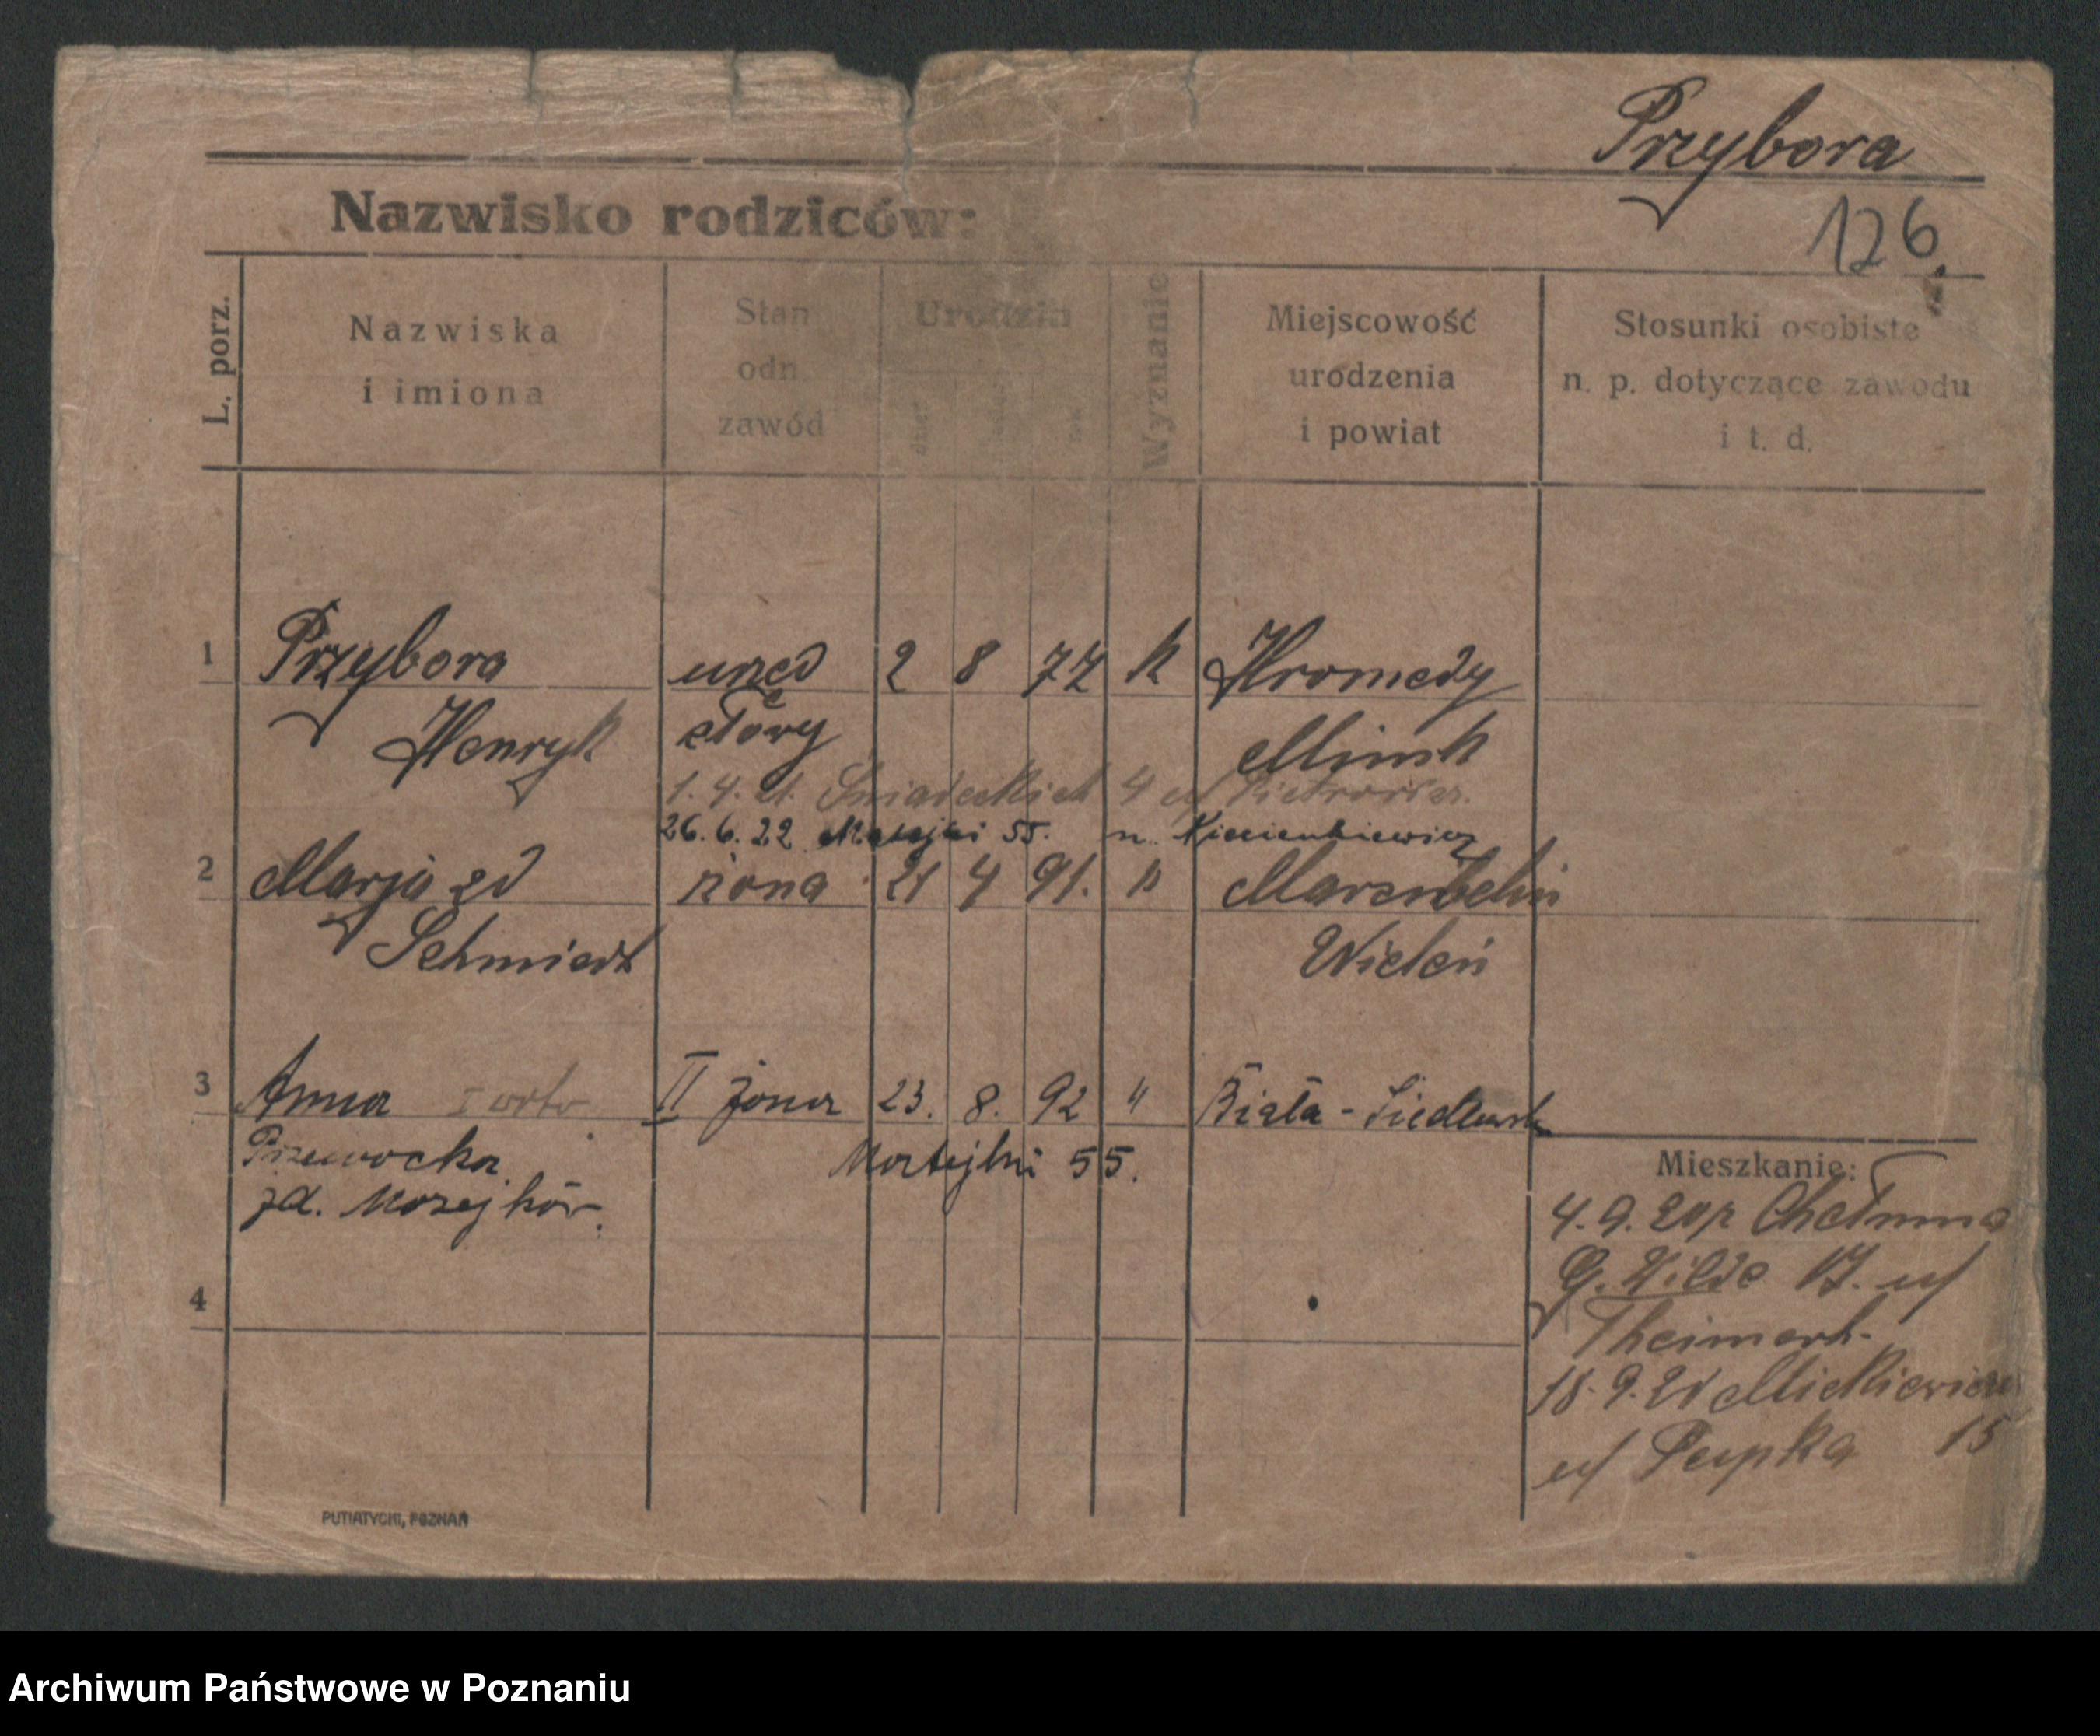 Przybora
126.
Nazwisko rodziców:
L. porz.
Nazwiska
i imiona
Stan
odn
zawód
Urodzin
Wyznanie
Miejscowość
urodzenia
i powiat
Stosunki osobiste
n. p. dotyczące zawodu
i t. d.
1 Przybora urzęd 2 8 77 k Hromedy
Henryk Mińsk
1. 4. Śniadeckich 4 u/
26. 6. 22 Matejki 55. u.
2 Marja zd żona 21 4 91. " 
Schmiedt Wieleń
3 Anna I II żona 23. 8. 92 " Biała-Siedlewsk
Przewocka Matejki 55.
zd. Mozejków.
4
Mieszkanie:
4. 9. Chełmna
G. Wilda 17. u/
18. 9. 21 Mickiewicza
u/ Pupka 15
PUTIATYCKI, POZNAŃ
Archiwum Państwowe w Poznaniu